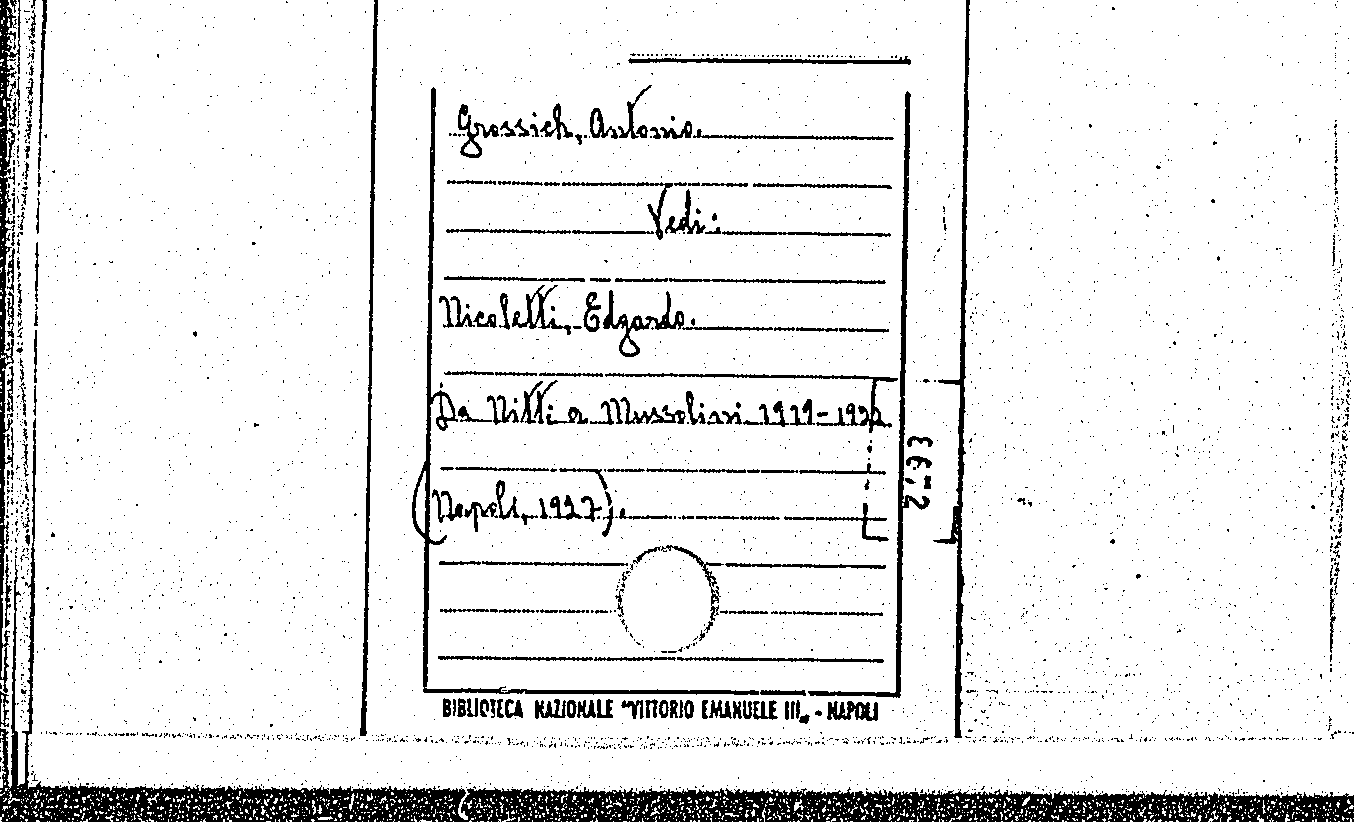 Grossich, Antonio.
Vedi:
Nicoletti, Edgardo.
Da Nitti a Mussolini 1919-1922.
(Napoli, 1927).
BIBLIOTECA NAZIONALE "VITTORIO EMANUELE III„ - NAPOLI